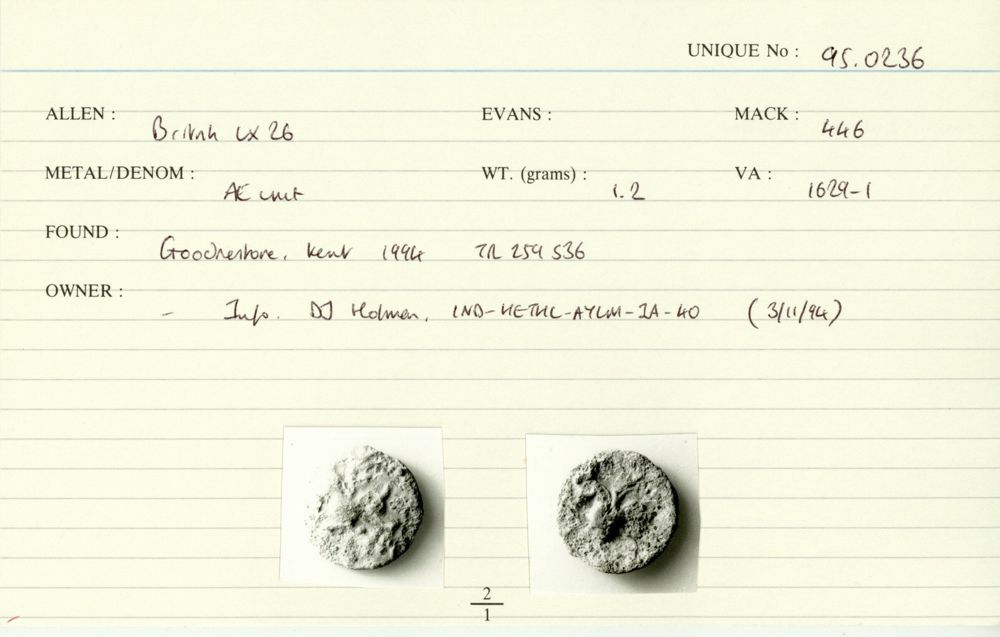 UNIQUE No : 95.0236
ALLEN : British LX 26 EVANS : MACK : 446
METAL/DENOM : AE unit WT. (grams) : 1.2 VA : 1629-1
FOUND : Goodnestone, Kent 1994 TR 259 536
OWNER : - Info. DJ Holman, (3/11/94)
2
1